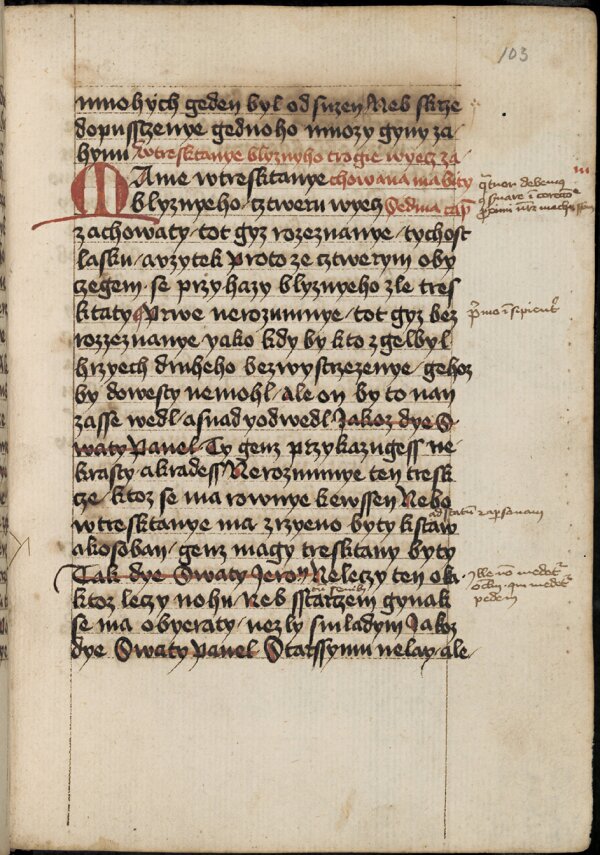 103
mnohych geden byl odsuzen Neb skrze
dopusstzenye gednoho mnozy gyny za
hynu Wtresktanye blyznyho trogie wyecz za
Mame wtresktanye chowana ma byty
blyznyeho cztweru wyecz Sedma cap
zachowaty tot gyz rozeznanye tychost
lasku a vzytek Proto ze cztwerym oby
czegem se przyhazy blyznyeho zle tres
ktaty Prwe nerozumnye tot gyz bez
rozzeznanye yako kdy by kto zgelbyl
hrzych druheho bezwystrzezenye gehoz
by dowesty nemohl ale on by to nan
zasse wedl a snad y odwedl Jakoz dye S
waty Pawel Ty genz przykazugess ne
krasty a kradess Nerozumnye ten tresk
cze ktoz se ma rownye kewssen Nebo
wtresktanye ma zrzyeno byty kstaw
a kosoban genz magy tresktany byty
ad statum
Tak dye Swaty Jeron Neleczy ten oka
ktoz leczy nohu Neb sstarzem gynak
se ma obyeraty nezly smladym Jakoz
dye Swaty Pawel Starssymu nelay ale
pedem